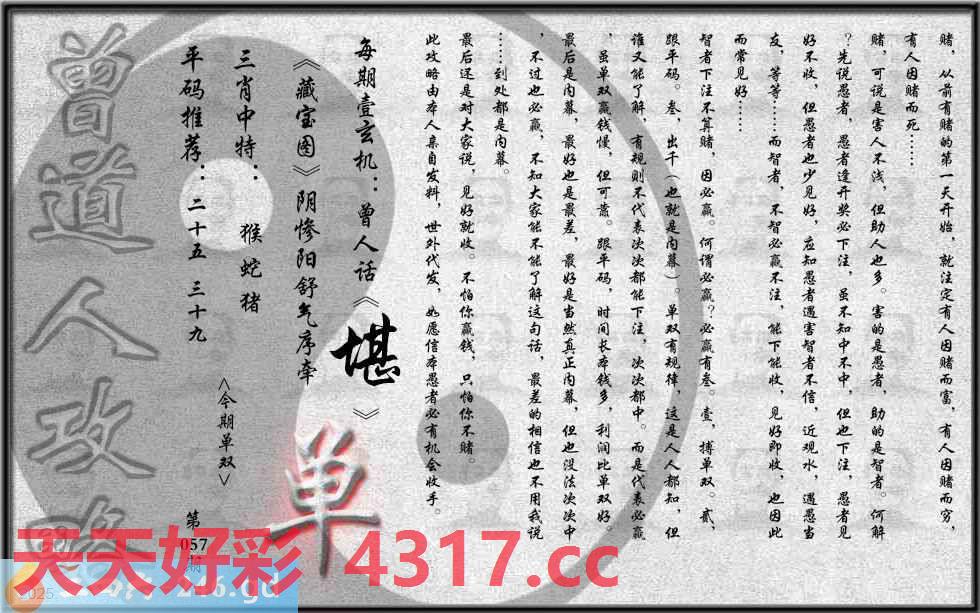 赌，从前有赌的第一天开始，就注定有人因赌而富，有人因赌而穷，
有人因赌而死……
赌，可说是害人不浅，但助人也多。害的是愚者，助的是智者。何解
？先说愚者，愚者逢开奖必下注，虽不知中不中，但也下注，愚者见
好不收，但愚者也少见好，应知愚者遇害智者不信，近观水，遇愚当
友，等等……而智者，不智必赢不注，能下能收，见好即收，也因此
而常见好……
智者下注不算赌，因必赢。何谓必赢？必赢有叁。壹，搏单双。贰，
跟平码。叁，出千（也就是内幕）。单双有规律，这是人人都知，但
谁又能了解，有规则不代表次次都能下注，次次都中。而是代表必赢
，虽单双赢钱慢，但可靠。跟平码，时间长本钱多，利润比单双好。
最后是内幕，最好也是最差，最好是当然真正内幕，但也没法次次中
，不过也必赢，不知大家能不能了解这句话，最差的相信也不用我说
……到处都是内幕。
最后还是对大家说，见好就收。不怕你赢钱，只怕你不赌。
此攻略由本人亲自发料，世外代发，如愿信本愚者必有机会收手。
每期壹玄机：曾人话《堪》
《藏宝图》阴惨阳舒气序牵
三肖中特： 猴 蛇 猪
平码推荐：二十五 三十九
<今期单双>
单
第
057
期
曾道人攻略
天天好彩 4317.cc
2025
246.gd